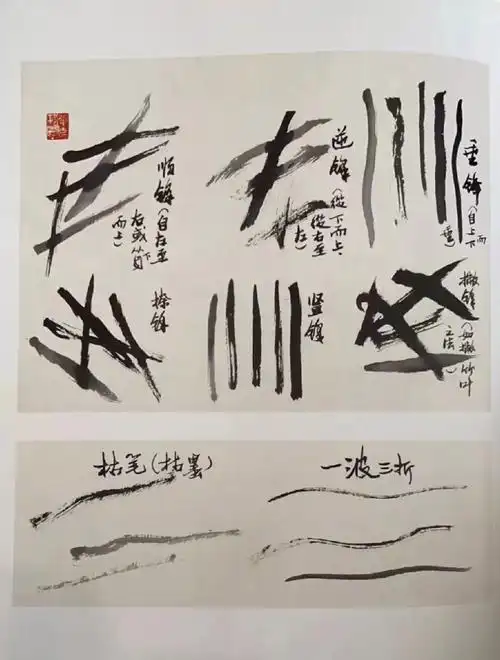 顺锋（自左至
右或从下
而上）
逆锋（從下而上、
從右至
左）
垂锋（自上而下
垂）
捺锋
竖锋
撇锋（如撇竹叶
之法）
枯笔（枯墨）
一波三折